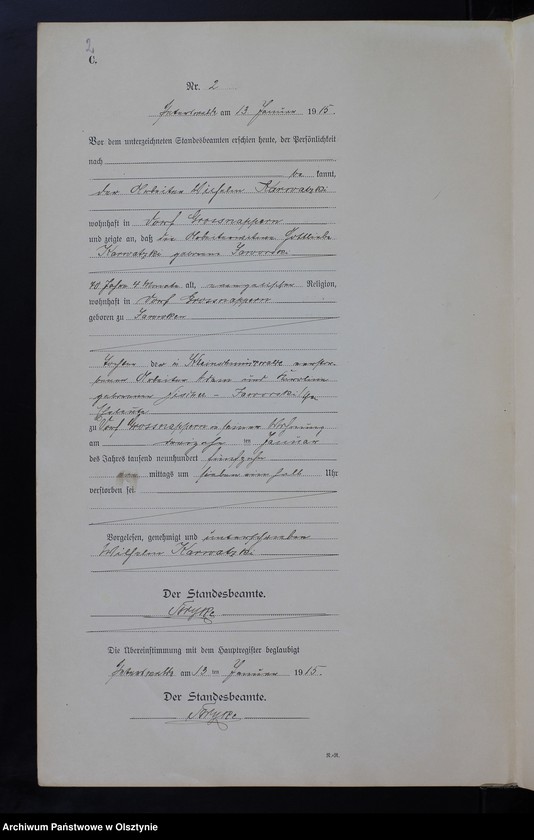 2
C.
Nr. 2
am 13 Januar 1915.
Vor dem unterzeichneten Standesbeamten erschien heute, der Persönlichkeit
nach
be kannt,
der Arbeiter Wilhelm Karwatzki
wohnhaft in Dorf Grossnappern
und zeigte an, daß die Arbeiterwitwe Gottliebe
Karwatzki geborene
70 Jahre 4 Monate alt, evangelischer Religion,
wohnhaft in Dorf Grossnappern
geboren zu
Tochter der in verstor-
benen Arbeiter Adam und Karoline
geborener
Eheleute
zu Dorf Grossnappern in seiner Wohnung
am dreizehn ten Januar
des Jahres tausend neunhundert fünfzehn
mittags um sieben ein halb Uhr
verstorben sei
Vorgelesen, genehmigt und unterschrieben
Wilhelm Karwatzki
Der Standesbeamte.
Die Übereinstimmung mit dem Hauptregister beglaubigt
am 13 ten Januar 1915.
Der Standesbeamte.
R.-R.
Archiwum Państwowe w Olsztynie